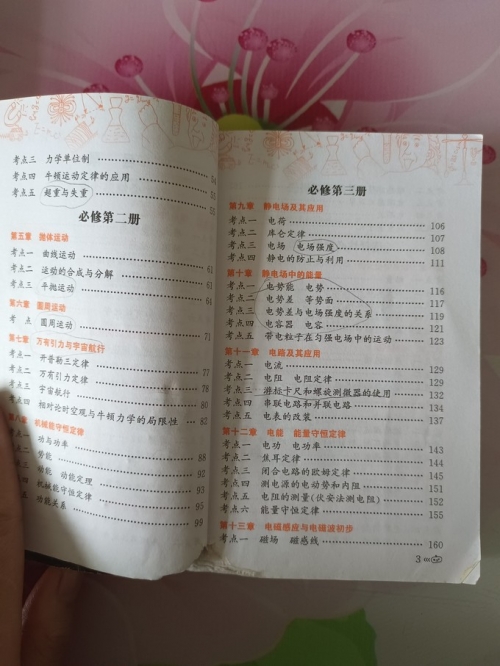 考点三 力学单位制
考点四 牛顿运动定律的应用 54
考点五 超重与失重 55
必修第二册
第五章 抛体运动
考点一 曲线运动
考点二 运动的合成与分解 61
考点三 平抛运动 64
第六章 圆周运动
考点 圆周运动 71
第七章 万有引力与宇宙航行
考点一 开普勒三定律 77
考点二 万有引力定律 78
考点三 宇宙航行 80
考点四 相对论时空观与牛顿力学的局限性 82
第八章 机械能守恒定律
考点一 功与功率 88
考点二 势能 92
考点三 动能 动能定理 93
考点四 机械能守恒定律 95
考点五 功能关系 99
必修第三册
第九章 静电场及其应用
考点一 电荷 106
考点二 库仑定律 107
考点三 电场 电场强度 108
考点四 静电的防止与利用 111
第十章 静电场中的能量
考点一 电势能 电势 116
考点二 电势差 等势面 117
考点三 电势差与电场强度的关系 119
考点四 电容器 电容 121
考点五 带电粒子在匀强电场中的运动 123
第十一章 电路及其应用
考点一 电流 129
考点二 电阻 电阻定律 129
考点三 游标卡尺和螺旋测微器的使用 132
考点四 串联电路和并联电路 134
考点五 电表的改装 137
第十二章 电能 能量守恒定律
考点一 电功 电功率 143
考点二 焦耳定律 144
考点三 闭合电路的欧姆定律 145
考点四 测电源的电动势和内阻 151
考点五 电阻的测量(伏安法测电阻) 152
考点六 能量守恒定律 155
第十三章 电磁感应与电磁波初步
考点一 磁场 磁感线 160
3